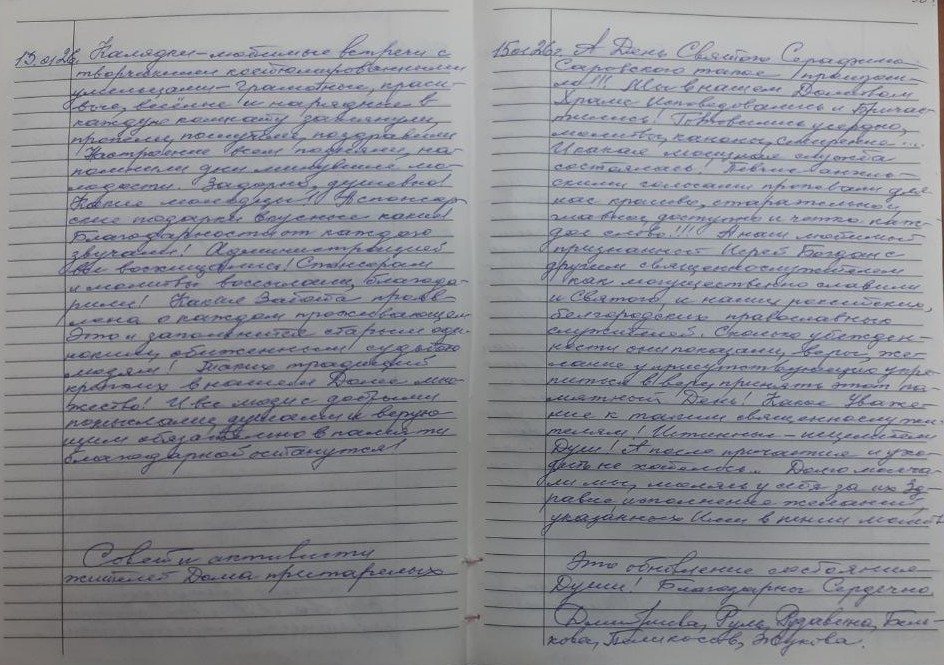 15.01.26. Калядки – любимые встречи с
творческими костюмированными
умельцами – грамотные, краси-
вые, весёлые и нарядные в
каждую комнату заглянули,
пропели, пошутили, поздравили
Настроение всем подняли, на-
помнили дни минувшие мо-
лодости. Задорно, душевно!
Какие молодцы! А спонсор-
ские подарки вкусные какие!
Благодарности от каждого
звучали! Администрацией
все восхищались! Спонсорам
и молитвы возсылали, благода-
рили! Какая Забота прояв-
лена о каждом проживающем
Это и запомнится старым оди-
ноким, обиженным судьбою
людям! Таких традиций
крепких в нашем Доме мно-
жество! И все люди с добрыми
помыслами, душами и верую-
щим обязательно в памяти
благодарной останутся!
Совет и активисты
жителей Дома престарелых
15.01.26г. А День Святого Серафима
Саровского такое
Мы в нашем Домовом
Храме исповедовались и Прича-
стились! Готовились усердно,
молитвы, каноны, смиренно...
И какая мощная служба
состоялась! Певчие ангель-
скими голосами пропевали для
нас красиво, старательно и
главное доступно и четко каж-
дое слово!!! А наш любимый
признанный Иерей Богдан с
другим священнослужителем
как могущественно славили
и Святого и наших российских,
белгородских православных
служителей. Сколько убежден-
ности они показали, веры, же-
лание у присутствующих укре-
питься в вере, принять этот па-
мятный День! Какое Уваже-
ние к таким священнослужи-
телям! Истинные – исцелители
Душ! А после причастия и ухо-
дить не хотелось... Долго молча-
ли мы, молясь у себя за их Здо-
равие, исполнение желаний,
указанных Ими в пении молитв
Это обновление состояния
Души! Благодарны Сердечно
Дмитриева, Руль, Рудавина, Бель-
кова, Жукова.